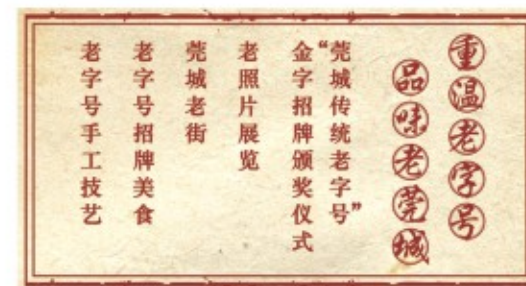 重温老字号
品味老莞城
“莞城传统老字号”
金字招牌颁奖仪式
老照片展览
莞城老街
老字号招牌美食
老字号手工技艺